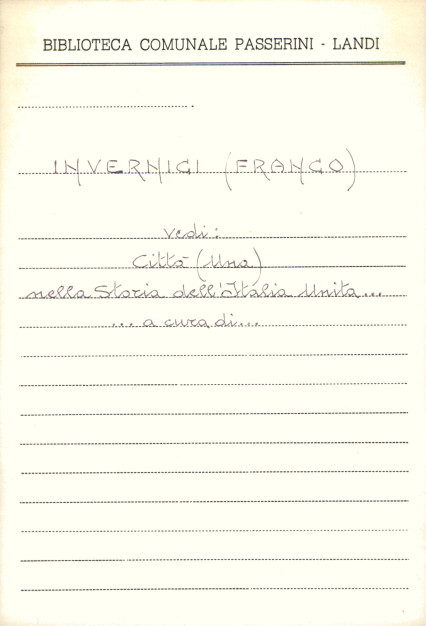 BIBLIOTECA COMUNALE PASSERINI - LANDI
INVERNICI (FRANCO)
vedi:
Città (Una)
nella Storia dell'Italia Unita...
... a cura di...